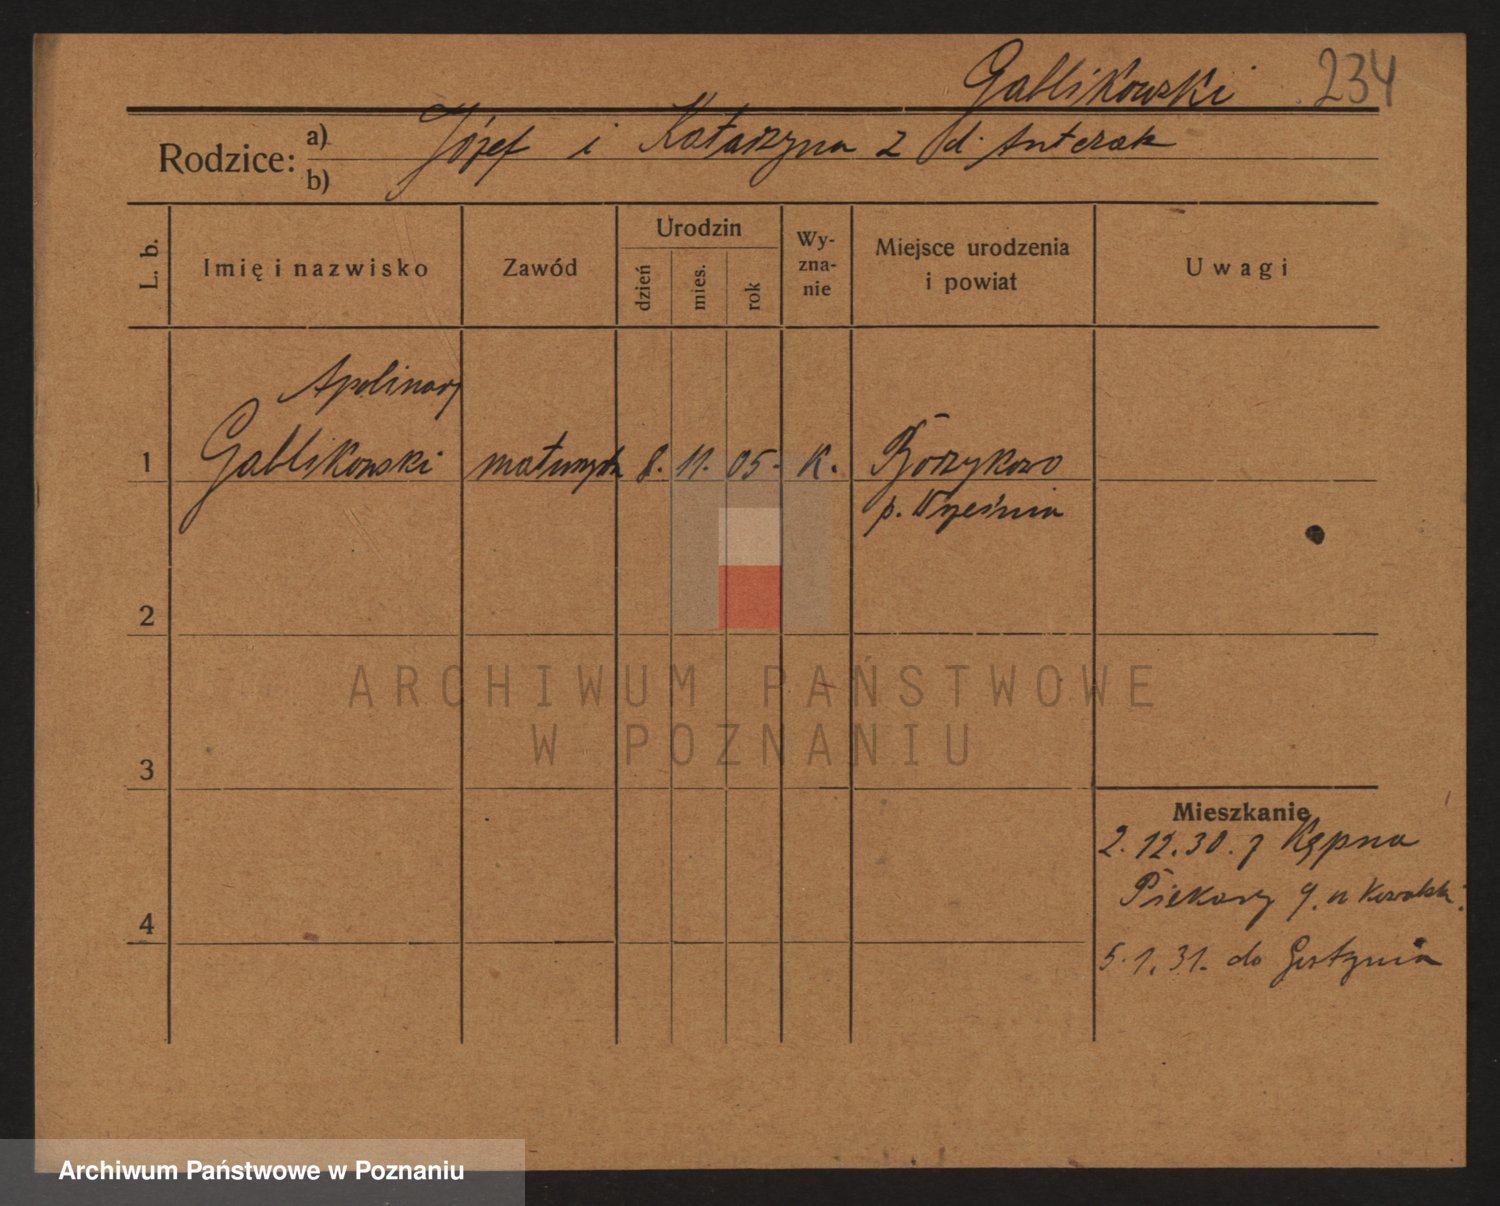 Gablikowski 234
Rodzice: a) Józef i Katarzyna z d. Anterak
b)
L. b. Imię i nazwisko Zawód Urodzin dzień mies. rok Wy-zna-nie Miejsce urodzenia i powiat Uwagi
Apolinary
1 Gablikowski 8. 11. 05. K. Borzykowo
p. Września
2
ARCHIWUM PAŃSTWOWE
W POZNANIU
3
Mieszkanie
2.12.30. z Kępna
4 Piekary 9. u Kowalski
5.1.31. do Gostynia
Archiwum Państwowe w Poznaniu